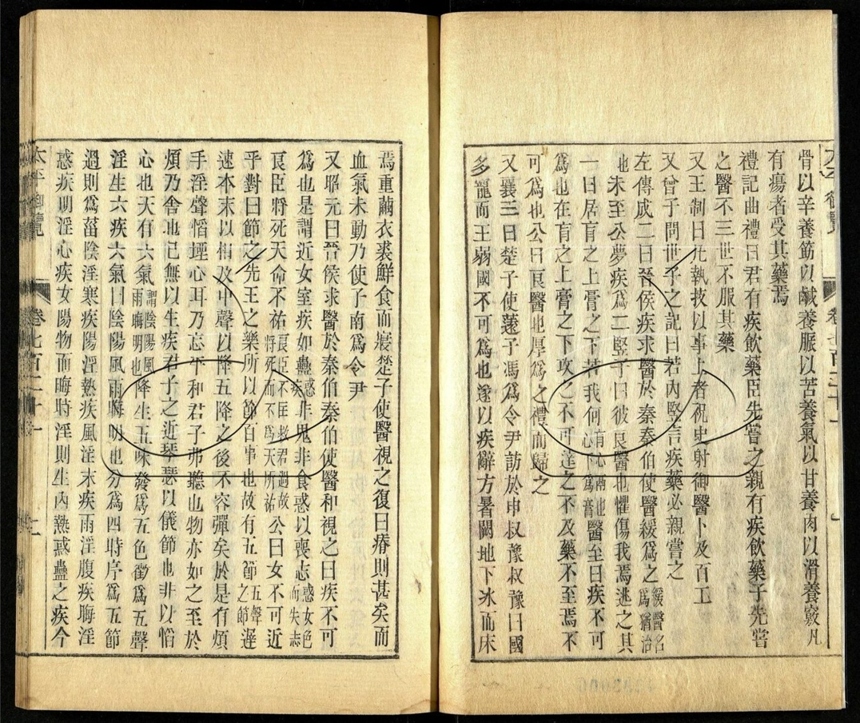 太平御覽 卷七百二十一
骨以辛養筋以鹹養脈以苦養氣以甘養肉以滑養竅凡
有瘍者受其藥焉
禮記曲禮曰君有疾飲藥臣先嘗之親有疾飲藥子先嘗
之醫不三世不服其藥
又王制曰凡執技以事上者祝史射御醫卜及百工
又曾子問世子之記曰若內豎言疾藥必親嘗之
左傳成二曰晉侯疾求醫於秦秦伯使醫緩爲之緩醫名爲猶治
也未至公夢疾爲二豎子曰彼良醫也懼傷我焉逃之其
一曰居肓之上膏之下若我何肓鬲也心下爲膏醫至曰疾不可
爲也在肓之上膏之下攻之不可達之不及藥不至焉不
可爲也公曰良醫也厚爲之禮而歸之
又襄三曰楚子使薳子馮爲令尹訪於申叔豫叔豫曰國
多寵而王弱國不可爲也遂以疾辭方暑闕地下冰而床
焉重繭衣裘鮮食而寢楚子使醫視之復曰瘠則甚矣而
血氣未動乃使子南爲令尹
又昭元曰晉侯求醫於秦秦伯使醫和視之曰疾不可
爲也是謂近女室疾如蠱惑疾非鬼非食惑以喪志惑女色而失志
良臣將死天命不祐良臣不匡救君過故將死而不爲天所祐公曰女不可近
乎對曰節之先王之樂所以節百事也故有五節五聲之節遲
速本末以相及中聲以降五降之後不容彈矣於是有煩
手淫聲慆堙心耳乃忘平和君子弗聽也物亦如之至於
煩乃舍也已無以生疾君子之近琴瑟以儀節也非以慆
心也天有六氣謂陰陽風雨晦明也降生五味發爲五色徵爲五聲
淫生六疾六氣曰陰陽風雨晦明也分爲四時序爲五節
過則爲菑陰淫寒疾陽淫熱疾風淫末疾雨淫腹疾晦淫
惑疾明淫心疾女陽物而晦時淫則生內熱惑蠱之疾今
太平御覽 卷七百二十一